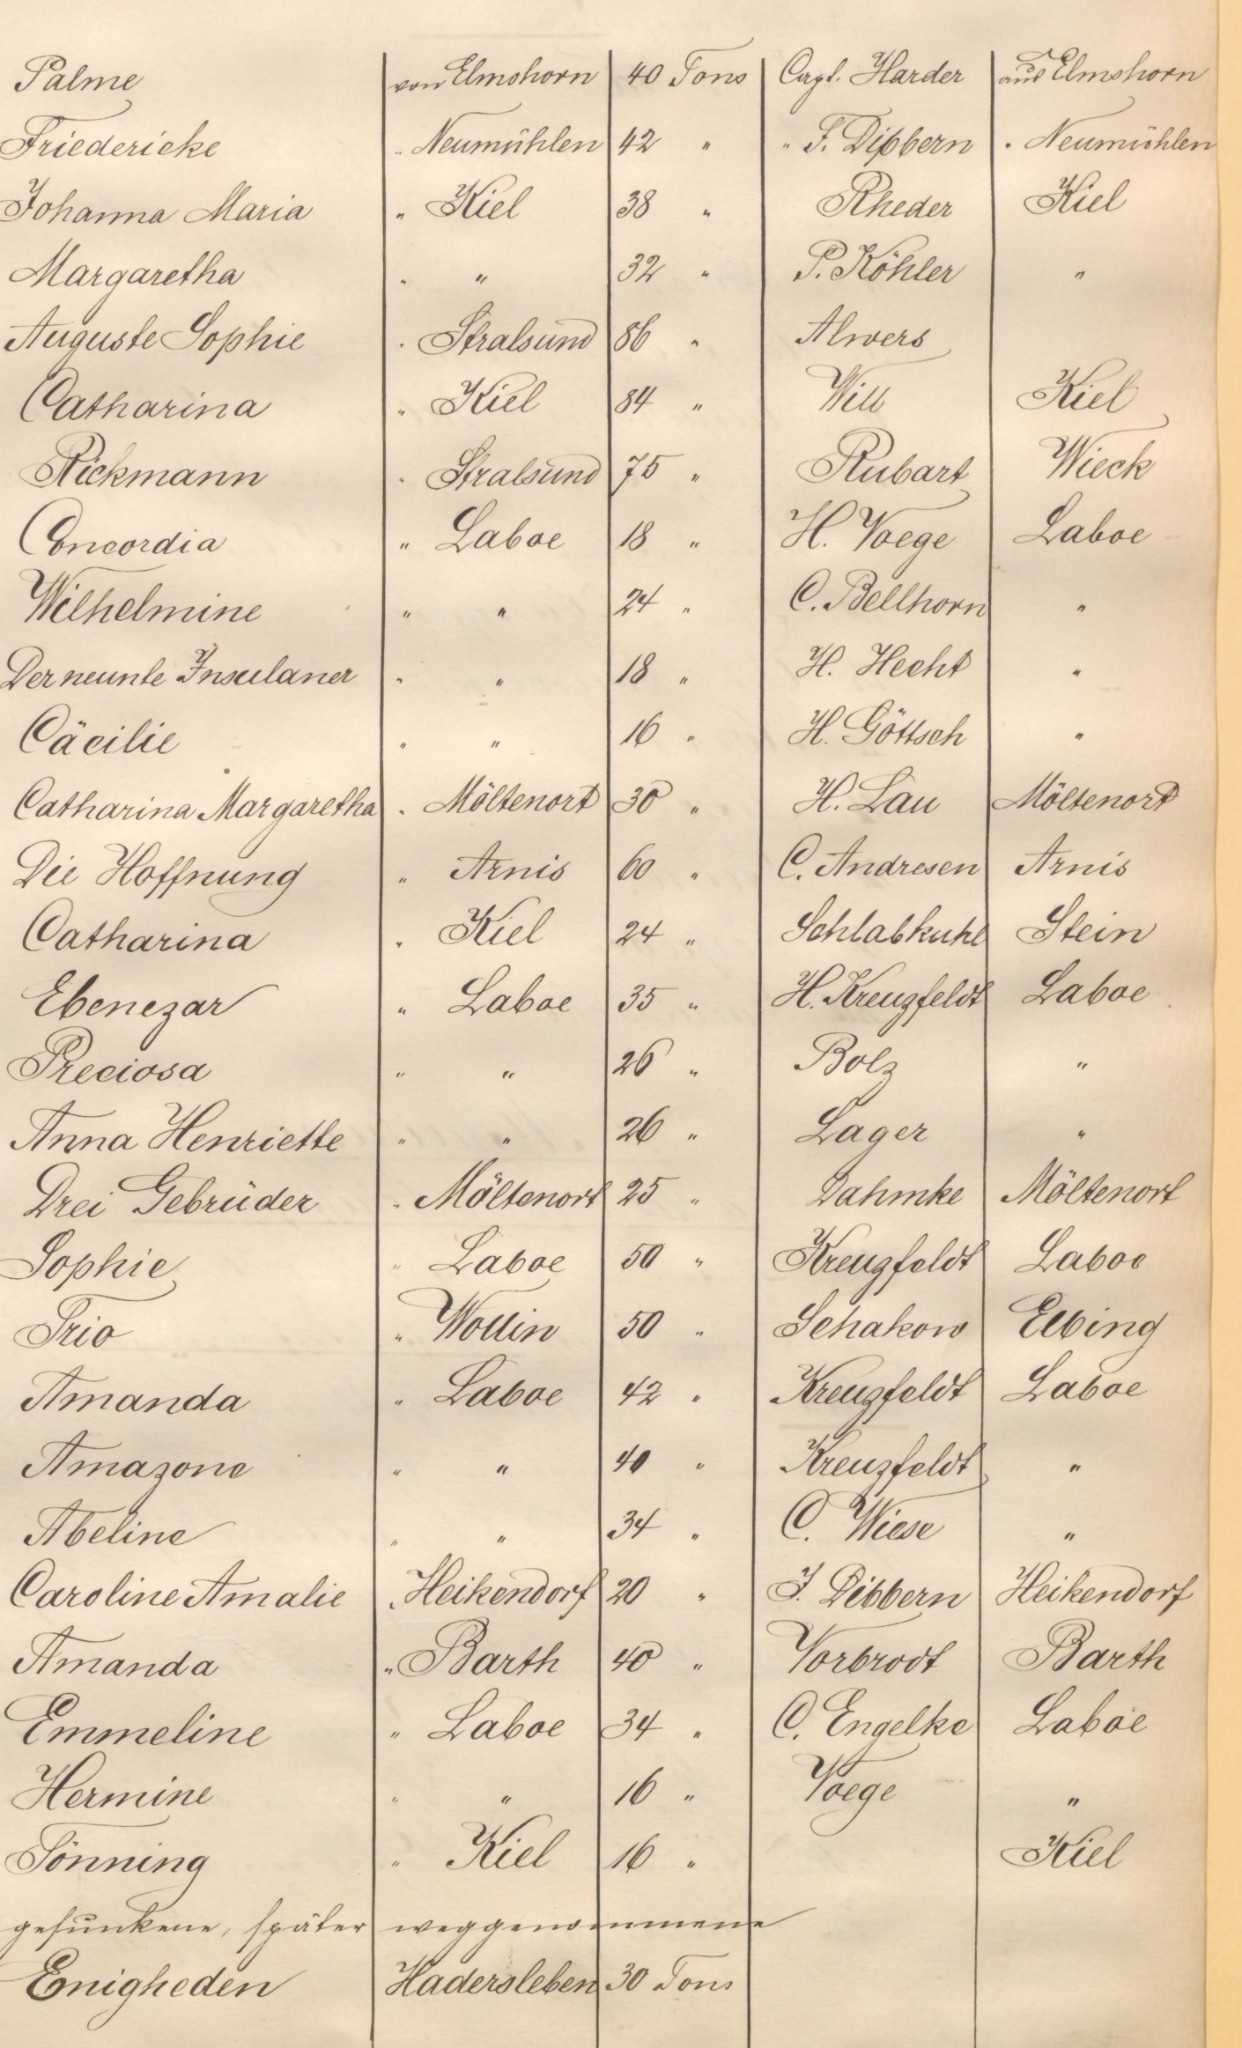 Palme von Elmshorn 40 Tons Capt. Harder aus Elmshorn
Friedericke " Neumühlen 42 " " F. Dibbern " Neumühlen
Johanna Maria " Kiel 38 " Rheder Kiel
Margaretha " " 32 " P. Köhler "
Auguste Sophie " Stralsund 86 " Alwers
Catharina " Kiel 84 " Will Kiel
Rickmann " Stralsund 75 " Rubart Wieck
Concordia " Laboe 18 " H. Voege Laboe
Wilhelmine " " 24 " C. Bellhorn "
Der neunte Insulaner " " 18 " H. Hecht "
Cäcilie " " 16 " H. Göttsch "
Catharina Margaretha " Möltenort 30 " H. Lau Möltenort
Die Hoffnung " Arnis 60 " C. Andresen Arnis
Catharina " Kiel 24 " Schlabkuhl Stein
Ebenezar " Laboe 35 " H. Kreuzfeldt Laboe
Preciosa " " 26 " Bolz "
Anna Henriette " " 26 " Lager "
Drei Gebrüder " Möltenort 25 " Dahmke Möltenort
Sophie " Laboe 50 " Kreuzfeldt Laboe
Trio " Wollin 50 " Schakow Elbing
Amanda " Laboe 42 " Kreuzfeldt Laboe
Amazone " " 40 " Kreuzfeldt "
Abeline " " 34 " C. Wiese "
Caroline Amalie " Heikendorf 20 " J. Dibbern Heikendorf
Amanda " Barth 40 " Vorbrodt Barth
Emmeline " Laboe 34 " C. Engelke Laboe
Hermine " " 16 " Voege "
Tönning " Kiel 16 " Kiel
gesunkene, später weggenommene
Enigheden Hadersleben 30 Tons